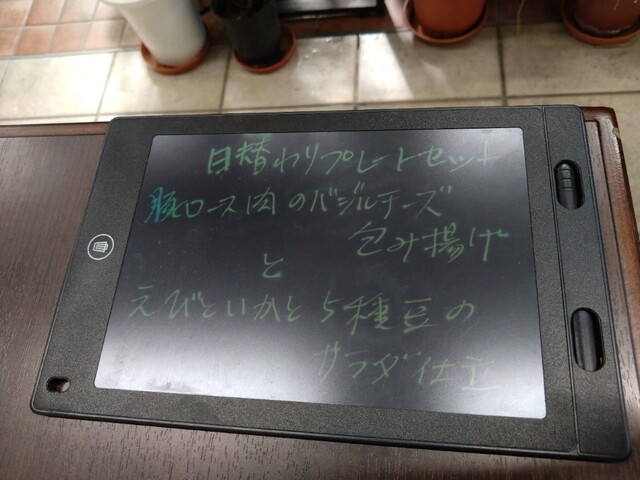 日替わりプレートセット
豚ロース肉のバジルチーズ
包み揚げ
と
えびといかと5種豆の
サラダ仕立